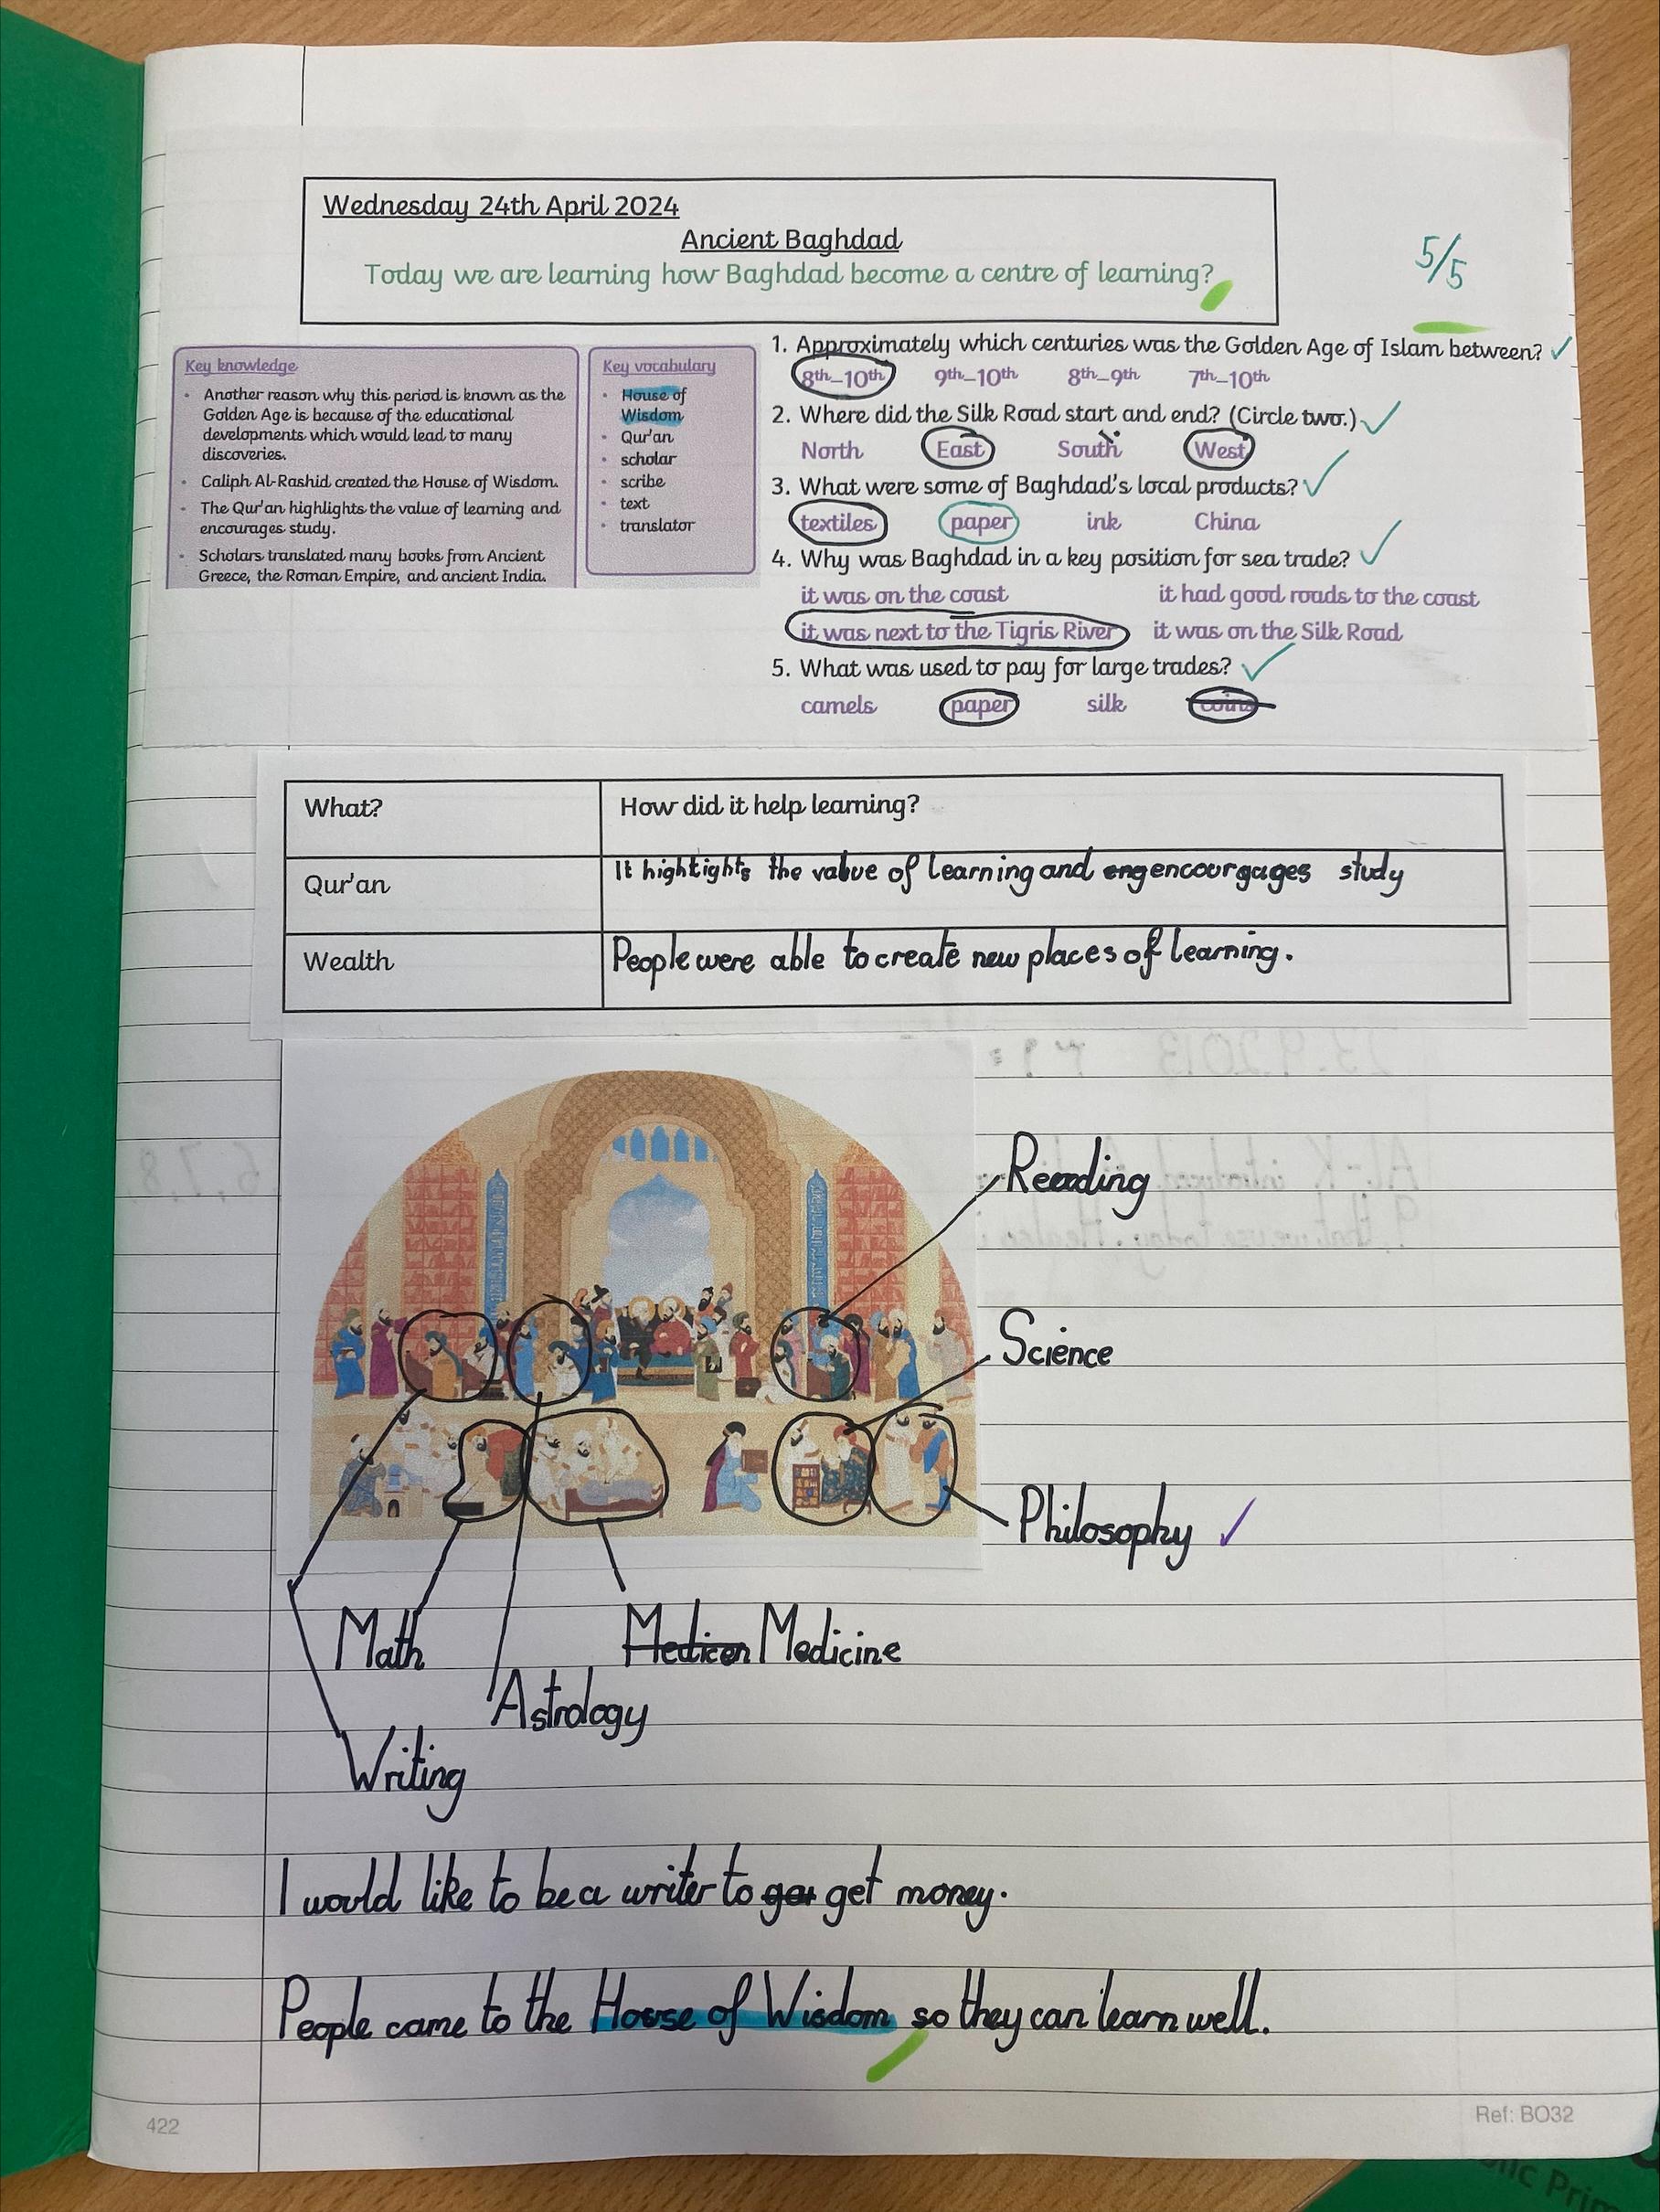 Wednesday 24th April 2024
Ancient Baghdad
Today we are learning how Baghdad become a centre of learning?
5/5
Key knowledge
Another reason why this period is known as the
Golden Age is because of the educational
developments which would lead to many
discoveries.
Caliph Al-Rashid created the House of Wisdom.
The Qur'an highlights the value of learning and
encourages study.
Scholars translated many books from Ancient
Greece, the Roman Empire, and ancient India.
Key vocabulary
House of
Wisdom
Qur'an
scholar
scribe
text
translator
1. Approximately which centuries was the Golden Age of Islam between?
8th-10th 9th-10th 8th-9th 7th-10th
2. Where did the Silk Road start and end? (Circle two.)
North East South West
3. What were some of Baghdad's local products?
textiles paper ink China
4. Why was Baghdad in a key position for sea trade?
it was on the coast it had good roads to the coast
it was next to the Tigris River it was on the Silk Road
5. What was used to pay for large trades?
camels paper silk coins
What? How did it help learning?
Qur'an It hightights the value of learning and eng encourgages study
Wealth People were able to create new places of learning.
23.9.2013
6,7,8
Reading
Science
Philosophy
Math
Medicen Medicine
Astrology
Writing
I would like to be a writer to get money.
People came to the House of Wisdom so they can learn well.
422
Ref: BO32